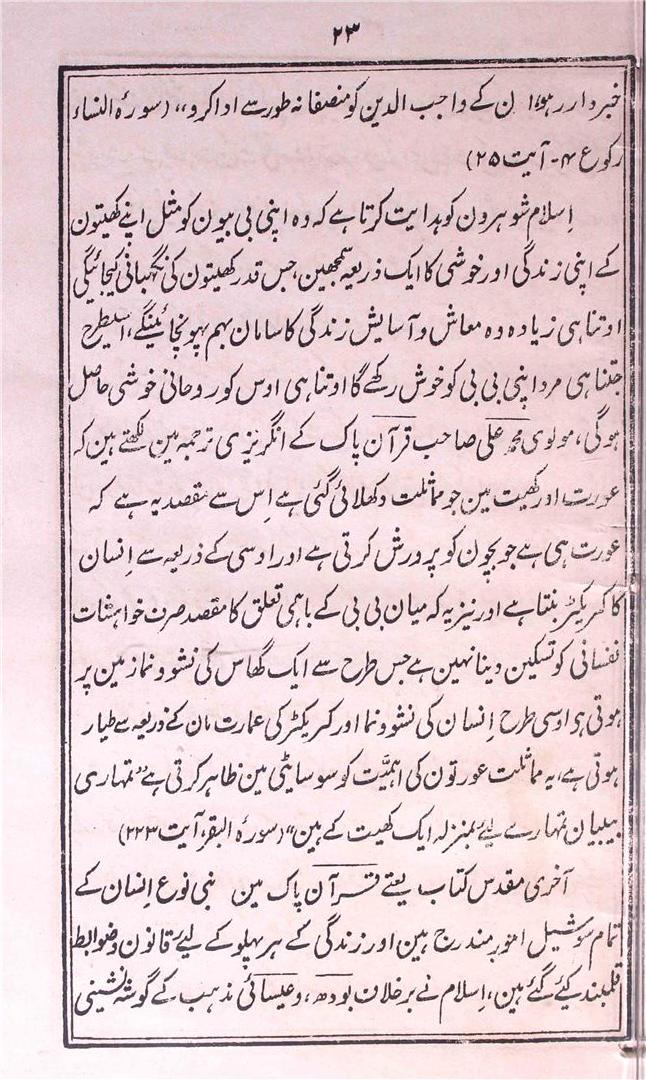 ۲۳
خبردار رہو، ان کے واجب الدین کو منصفانہ طور سے ادا کرو،، (سورۂ النساء
رکوع ۴- آیت ۲۵)
اِسلام شوہرون کو ہدایت کرتا ہے کہ وہ اپنی بی بیون کو مثل اپنے کھیتون
کے اپنی زندگی اور خوشی کا ایک ذریعہ سمجھین، جس قدر کھیتون کی نگہبانی کیجائیگی
اوتنا ہی زیادہ وہ معاش و آسایش زندگی کا سامان بہم پہونچائینگے، اسیطرح
جتنا ہی مرد اپنی بی بی کو خوش رکھے گا اوتنا ہی اوس کو روحانی خوشی حاصل
ہوگی، مولوی محمد علی صاحب قرآن پاک کے انگریزی ترجمہ مین لکھتے ہین کہ
عورت اور کھیت مین جو مماثلت دکھلائی گئی ہے اِس سے مقصد یہ ہے کہ
عورت ہی ہے جو بچون کو پرورش کرتی ہے اور اوسی کے ذریعہ سے اِنسان
کا کریکٹر بنتا ہے اور نیز یہ کہ میان بی بی کے باہمی تعلق کا مقصد صرف خواہشات
نفسانی کو تسکین دینا نہین ہے جس طرح سے ایک گھاس کی نشو و نما زمین پر
ہوتی ہی اوسی طرح اِنسان کی نشو و نما اور کریکٹر کی عمارت مان کے ذریعہ سے طیار
ہوتی ہے، یہ مماثلت عورتون کی اہمیّت کو سوسایٹی مین ظاہر کرتی ہے ’’تمہاری
بیبیان تمہارے لیے بمنزلہ ایک کھیت کے ہین‘‘ (سورۂ البقر، آیت ۲۲۳)
آخری مقدس کتاب یعنے قرآن پاک مین بنی نوع اِنسان کے
تمام سوشیل امور مندرج ہین اور زندگی کے ہر پہلو کے لیے قانون و ضوابط
قلمبند کیے گئے ہین، اِسلام نے برخلاف بودھ، و عیسائی مذہب کے گوشہ نشینی